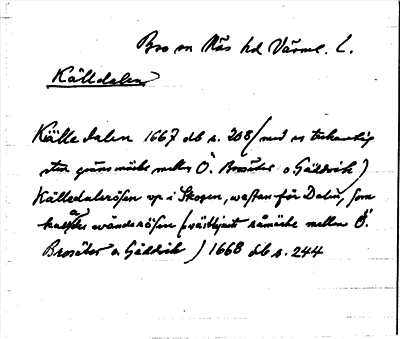 Bro sn Näs hd Värml. L.
Källdalen
Källe dalen 1667 db s. 208 (med en
sten gränsmärke mellan Ö. Brosäter o Gäddvik)
Källedalsrösen up i Skogen, westen för Dalen, som
kallas wänderösen (västligast råmärke mellan Ö.
Brosäter o Gäddvik) 1668 db s. 244